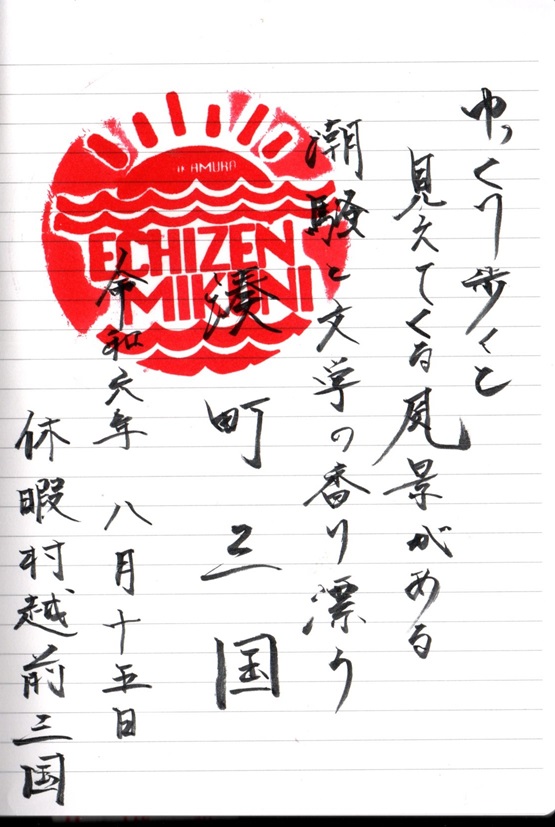 ゆっくり歩くと
見えてくる風景がある
潮騒と文学の香り漂う
湊町三国
令和六年 八月十五日
休暇村越前三国
ECHIZEN
MIKUNI